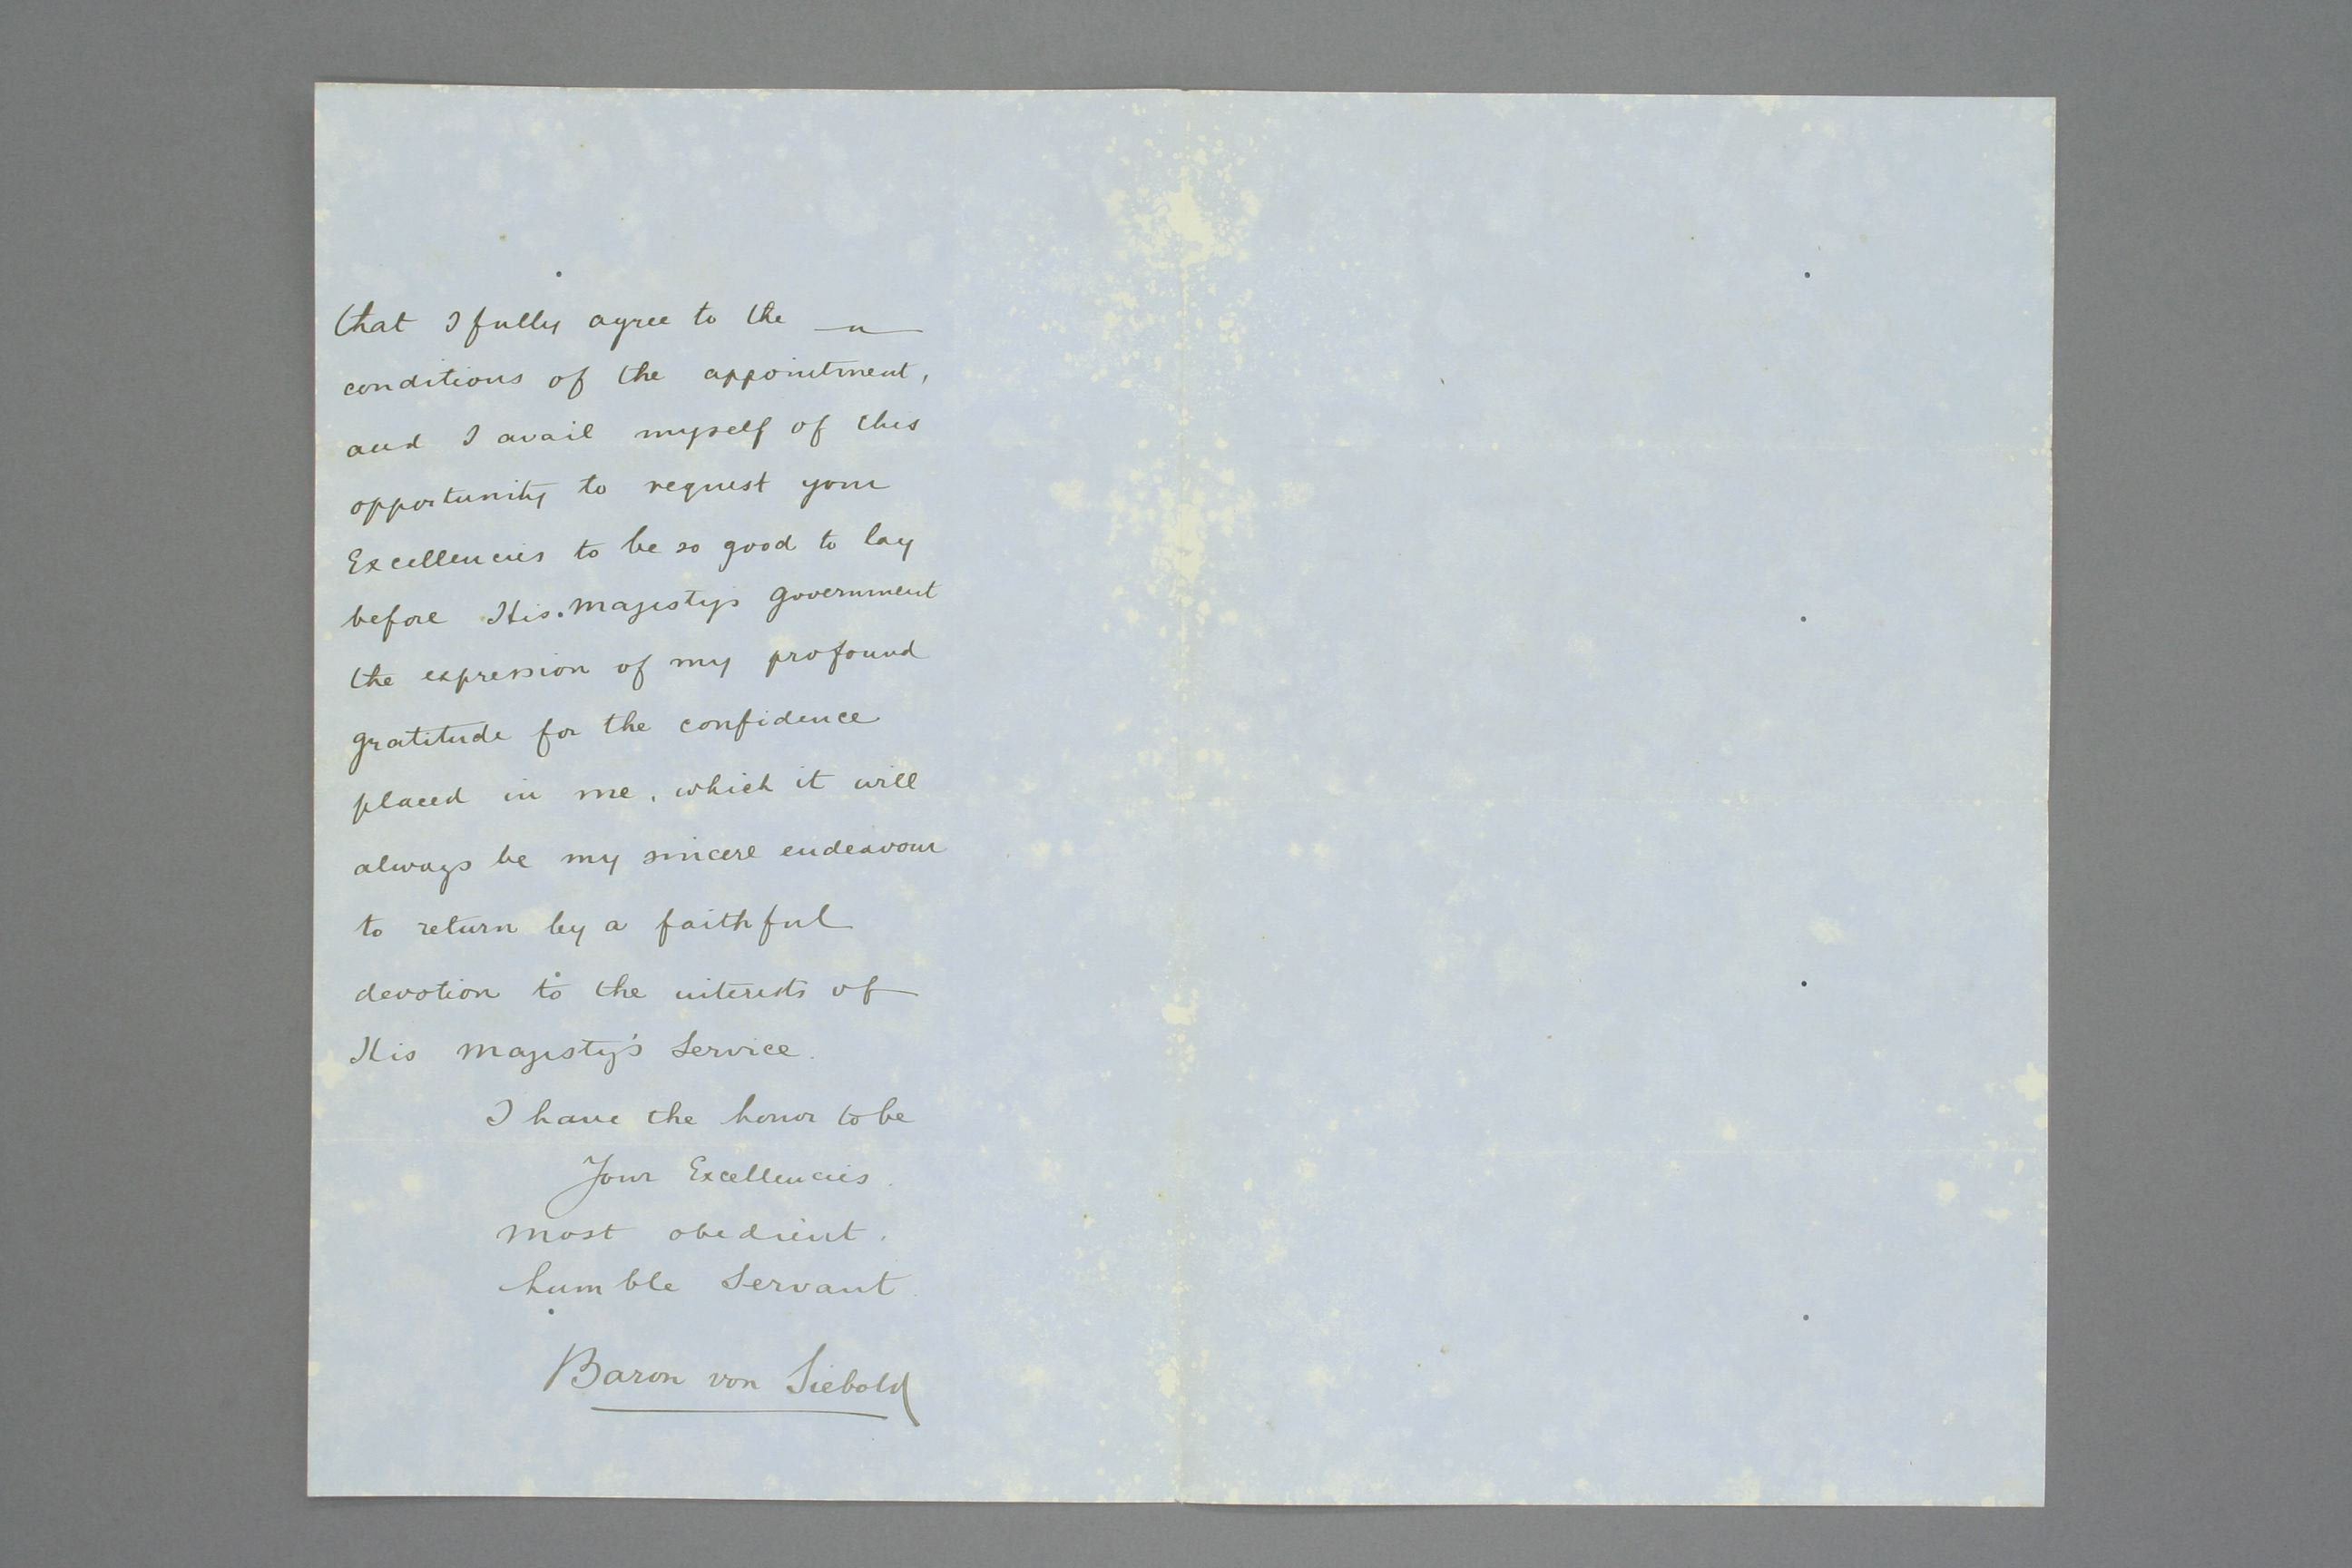 that I fully agree to the
conditions of the appointment,
and I avail myself of this
opportunity to request your
Excellencies to be so good to lay
before His Majesty's Government
the expression of my profound
gratitude for the confidence
placed in me, which it will
always be my sincere endeavour
to return by a faithful
devotion to the interests of
His Majesty's Service.
I have the honor to be
Your Excellencies
most obedient.
humble Servant
Baron von Siebold